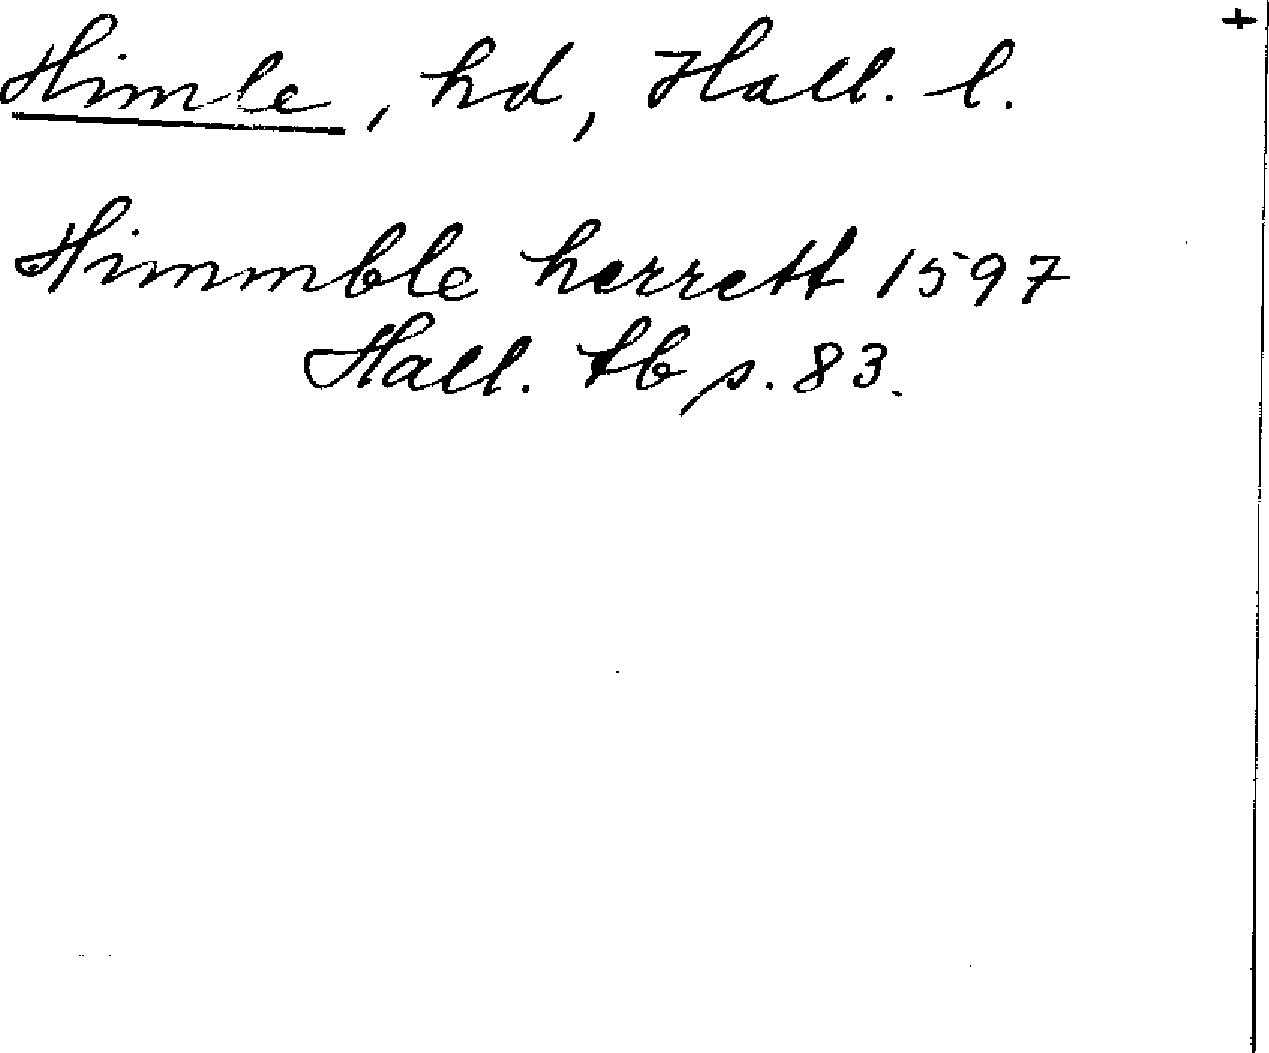 +
Himle, hd, Hall. l.
Himmble herrett 1597
Hall. tb s. 83.